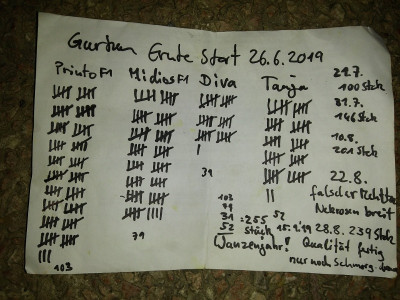 Gurken Ernte Start 26.6.2019
Printo F1 Midios F1 Diva Tanja
21.7.
100 Stck
31.7.
146 Stck
10.8.
201 Stck
22.8.
falscher Mehltau
Nekrosen breit
28.8. 239 Stck
Qualität fertig
nur noch
31
52
103
79
31
52
= 255
Stück 15.9.19
Wanzenjahr!
79
103